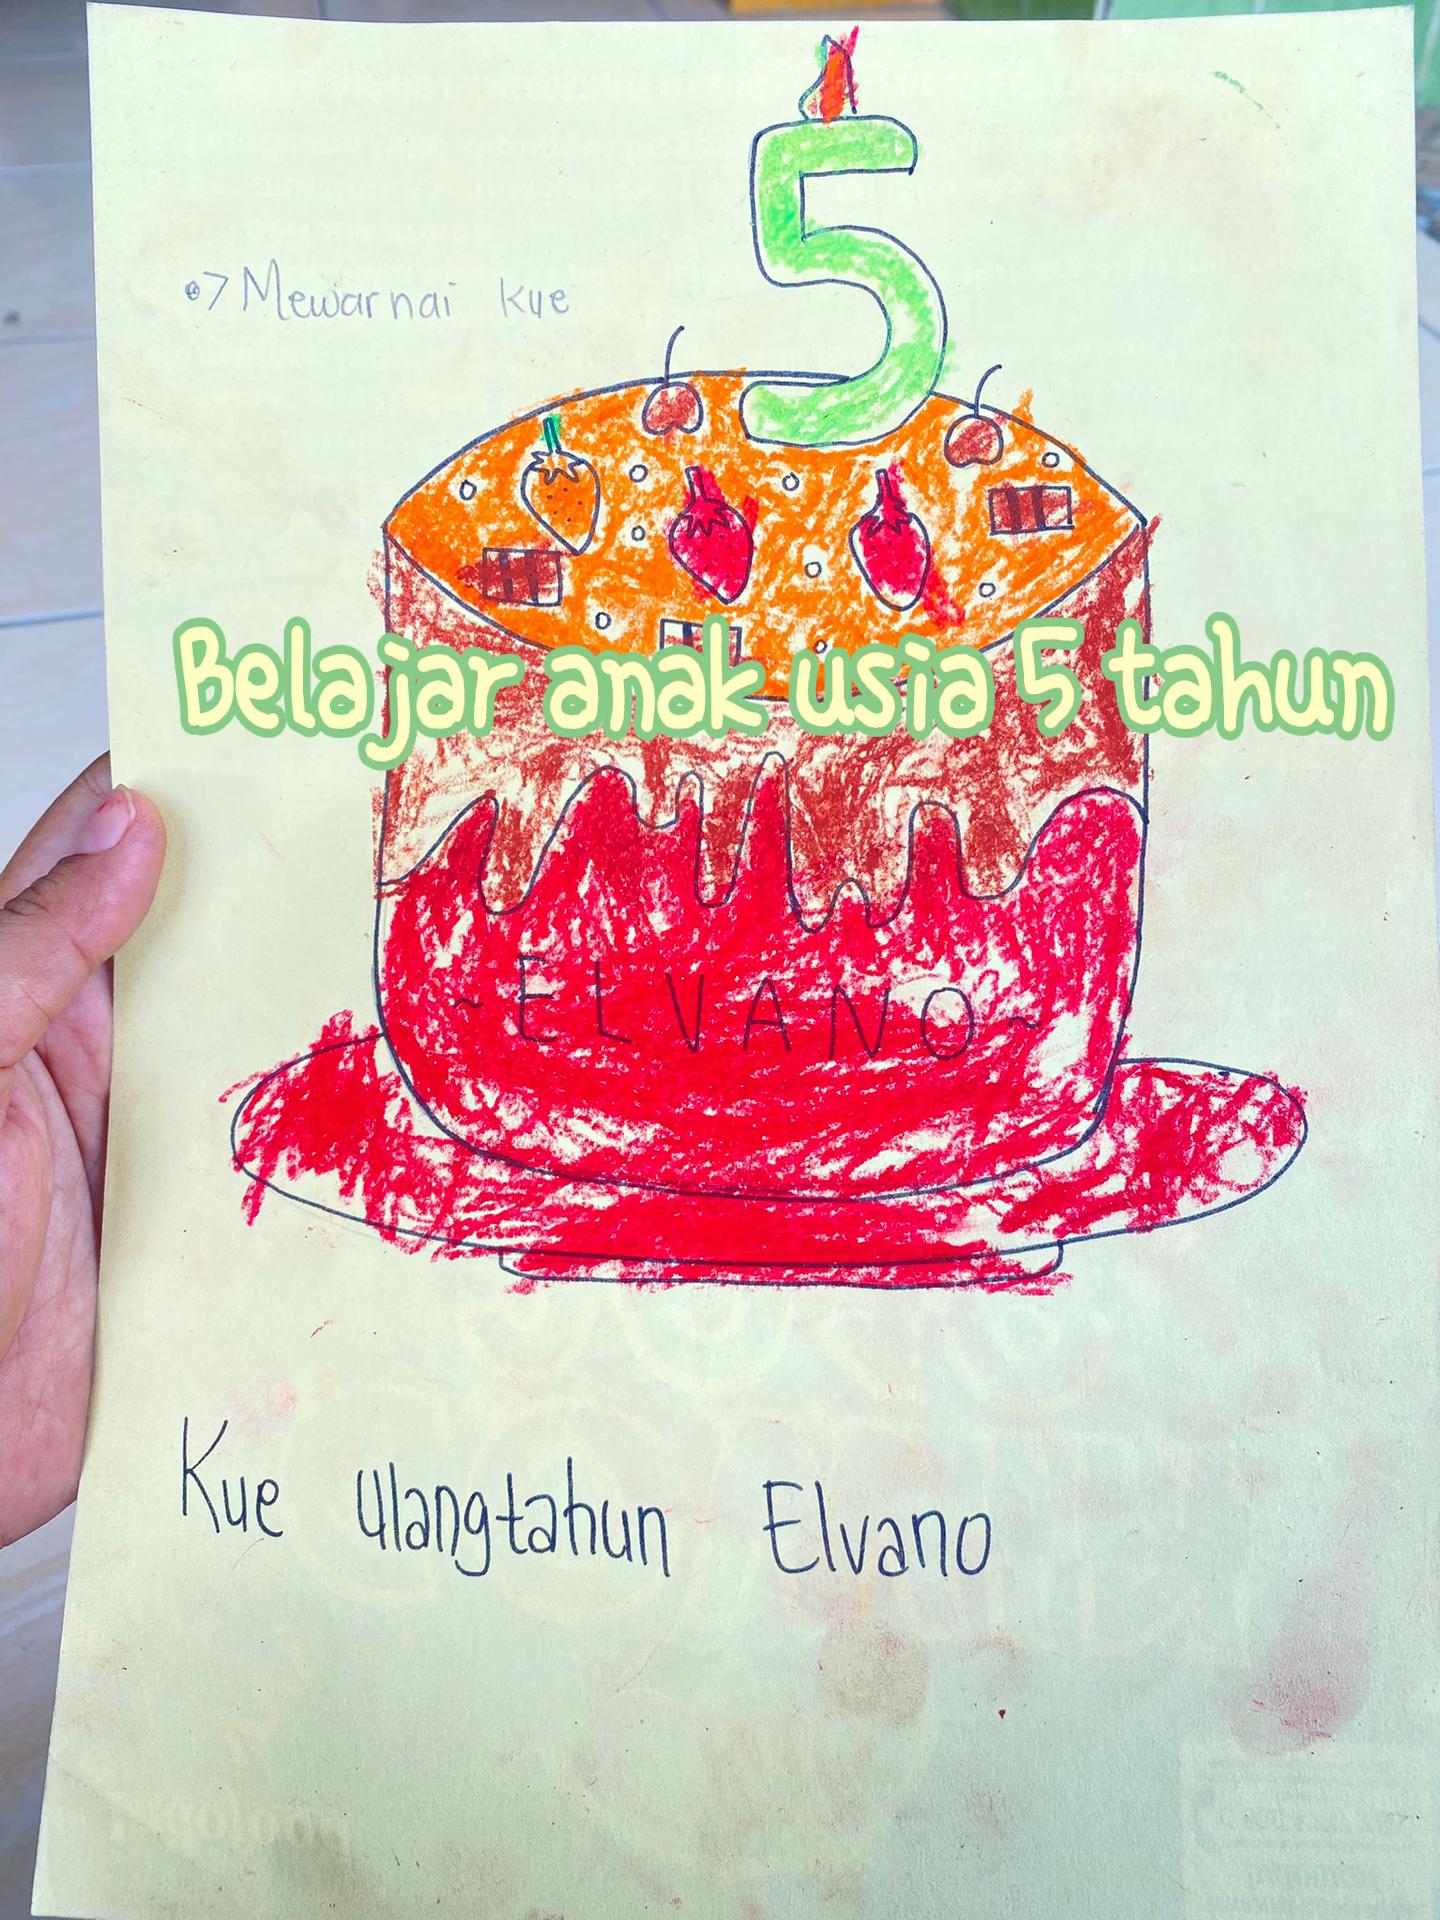 5
•> Mewarnai Kue
Belajar anak usia 5 tahun
~ELVANO~
Kue Ulangtahun Elvano